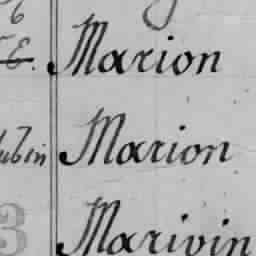 6
E. Marion
ubin Marion
3 Marivin